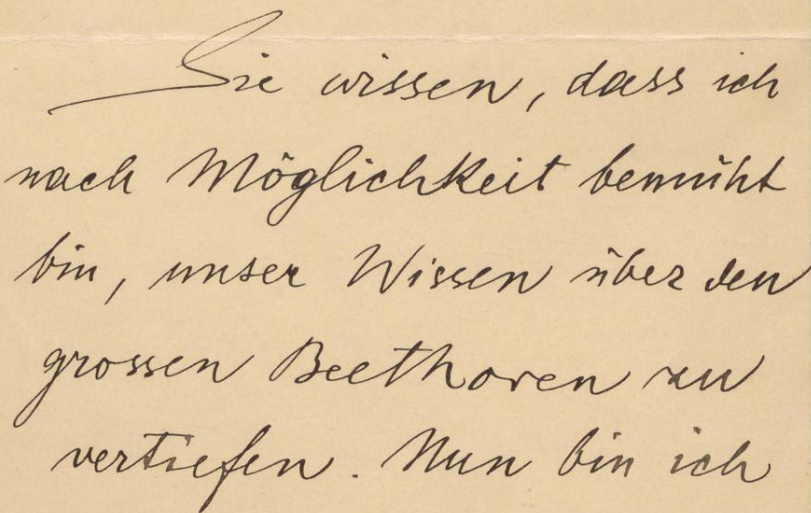 Sie wissen, dass ich
nach Möglichkeit bemüht
bin, unser Wissen über den
grossen Beethoven zu
vertiefen. Nun bin ich